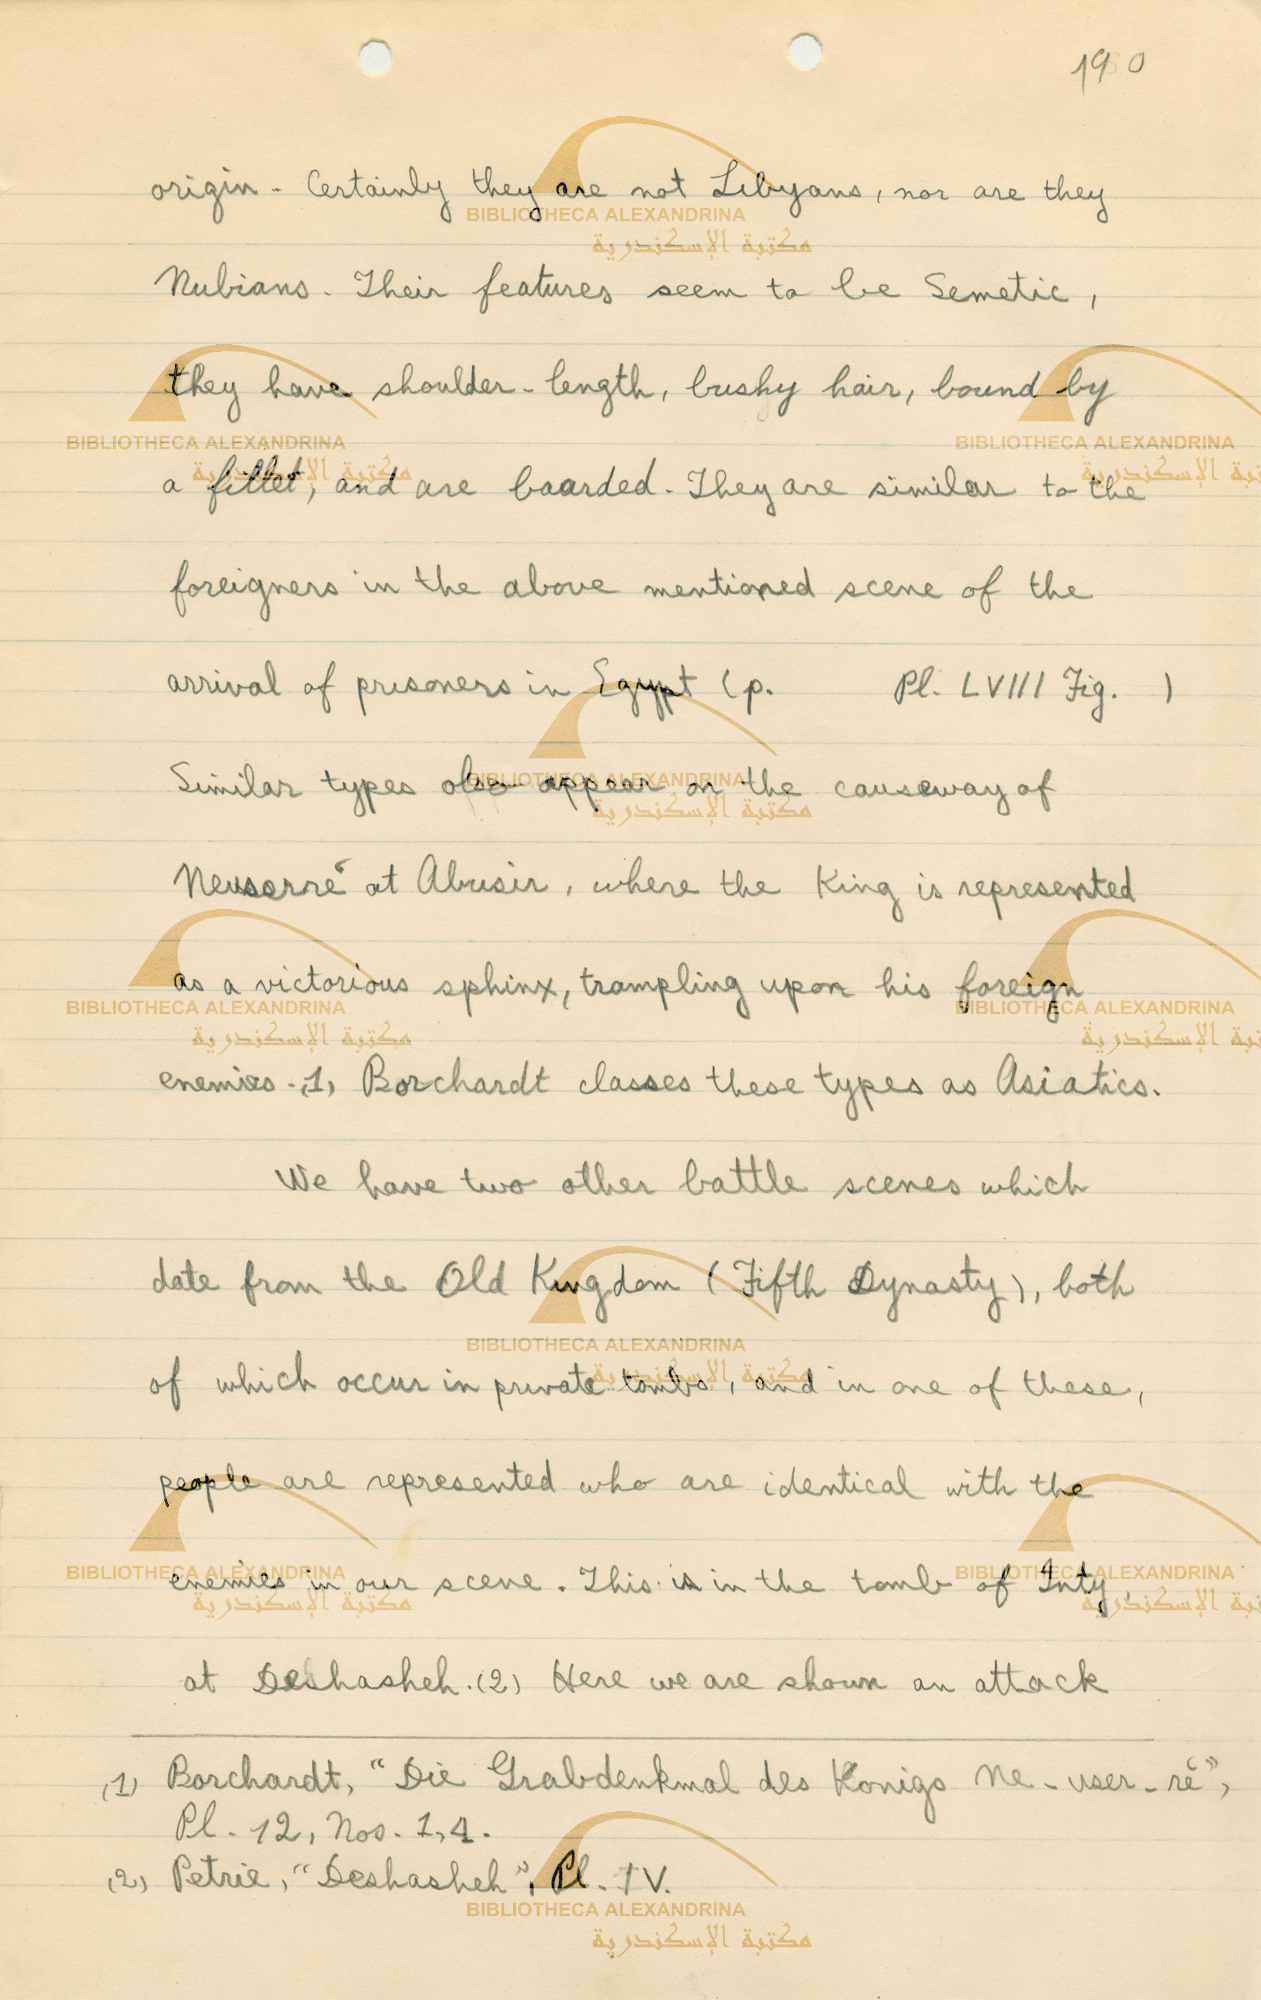 190
origin - Certainly they are not Libyans, nor are they
Nubians. Their features seem to be Semetic,
they have shoulder-length, bushy hair, bound by
a fillet, and are baarded. They are similar to the
foreigners in the above mentioned scene of the
arrival of prisoners in Egypt (p. Pl. LVIII Fig. )
Similar types also appear on the causeway of
Neuserre' at Abusir, where the King is represented
as a victorious sphinx, trampling upon his foreign
enemies. (1) Borchardt classes these types as Asiatics.
We have two other battle scenes which
date from the Old Kingdom (Fifth Dynasty), both
of which occur in private tombs, and in one of these,
people are represented who are identical with the
enemies in our scene. This is in the tomb of Inty,
at Deshasheh. (2) Here we are shown an attack
(1) Borchardt, "Die Grabdenkmal des Konigs Ne-user-rē",
Pl. 12, Nos. 1, 4.
(2) Petrie, "Deshasheh", Pl. IV.
BIBLIOTHECA ALEXANDRINA
مكتبة الإسكندرية